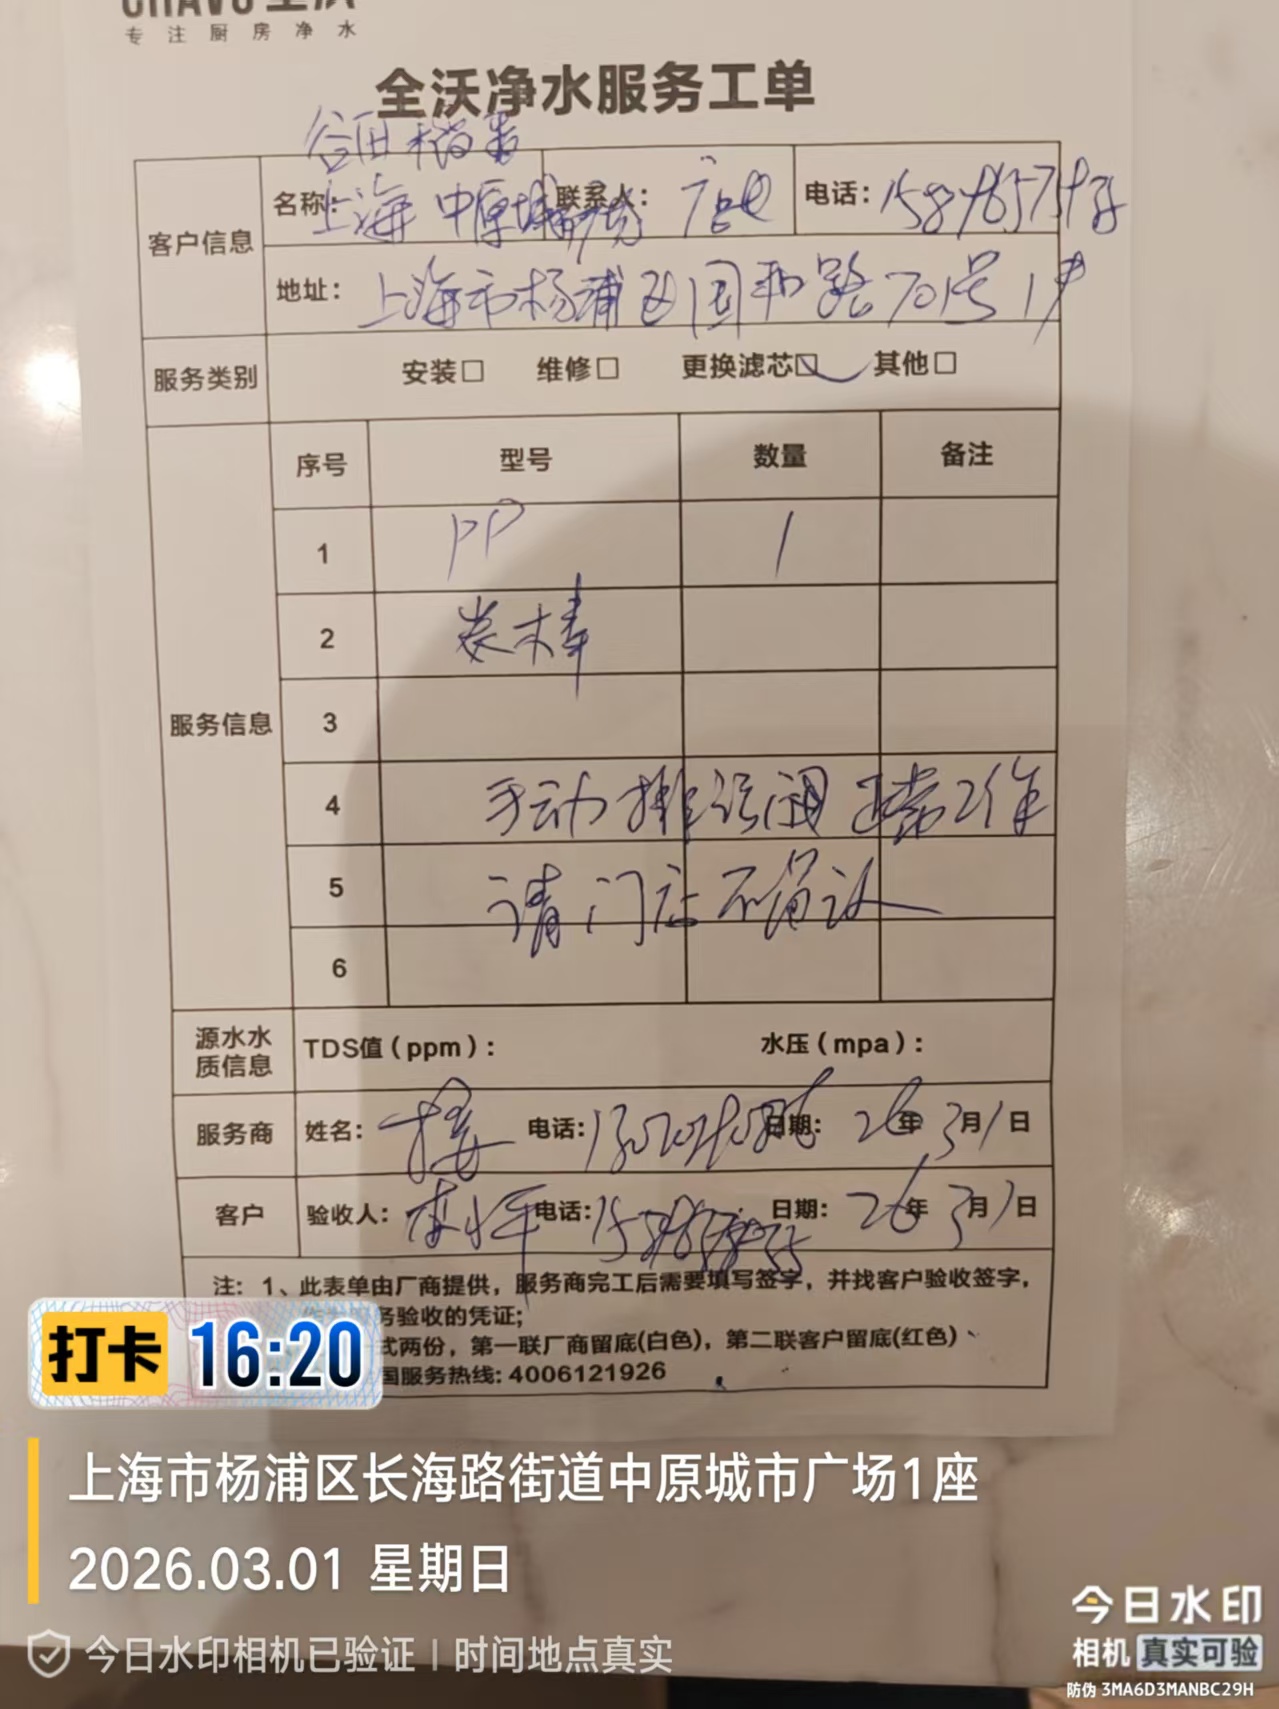 专注厨房净水
全沃净水服务工单
客户信息 名称: 上海中原城市广场 联系人: 电话:
地址: 上海市杨浦区国和路701号1F
服务类别 安装□ 维修□ 更换滤芯☑ 其他□
服务信息 序号 型号 数量 备注
1 PP 1
2 炭棒
3
4 手动排污阀正常工作
5 请门店确认
6
源水水质信息 TDS值(ppm): 水压(mpa):
服务商 姓名: 电话: 日期: 26年3月1日
客户 验收人: 电话: 日期: 26年3月1日
注: 1、此表单由厂商提供,服务商完工后需要填写签字,并找客户验收签字,
务验收的凭证;
式两份,第一联厂商留底(白色),第二联客户留底(红色)
国服务热线: 4006121926
打卡 16:20
上海市杨浦区长海路街道中原城市广场1座
2026.03.01 星期日
今日水印相机已验证 | 时间地点真实
今日水印
相机 真实可验
防伪 3MA6D3MANBC29H